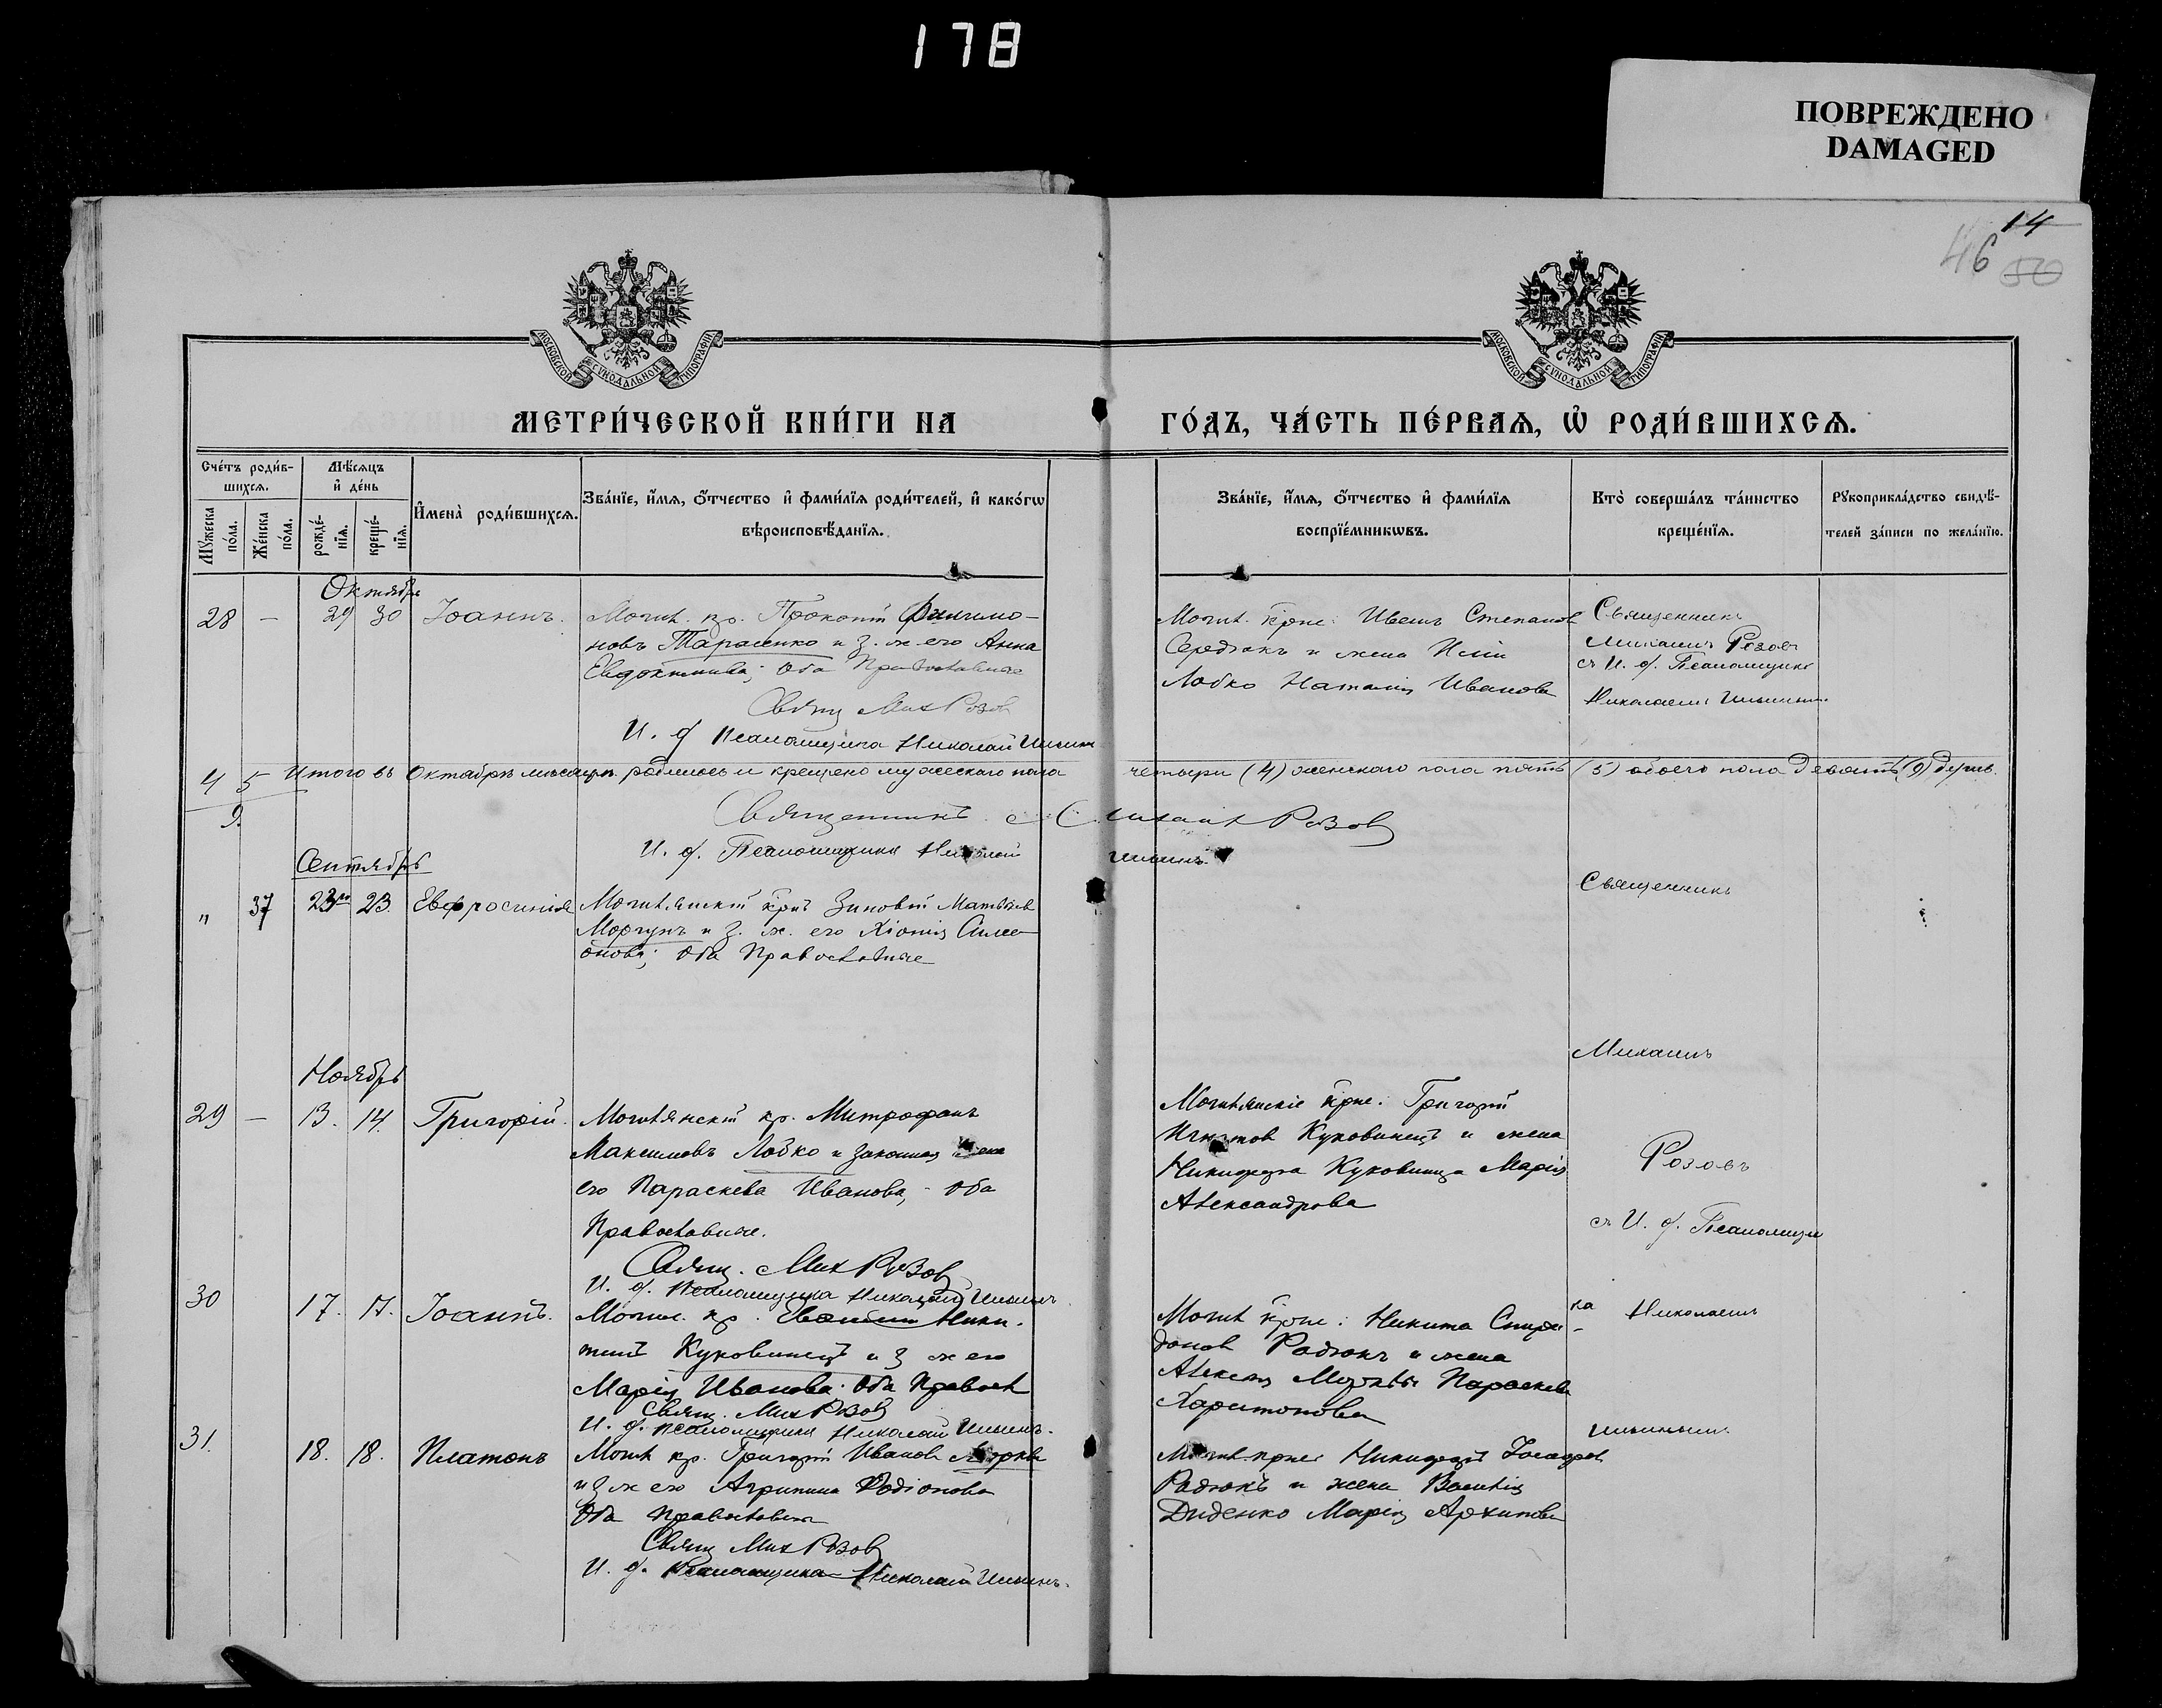 178
ПОВРЕЖДЕНО
DAMAGED
14
46 50
МОСКОВСКОЙ СѴНОДАЛЬНОЙ ТИПОГРАФІИ
МОСКОВСКОЙ СѴНОДАЛЬНОЙ ТИПОГРАФІИ
МЕТРИ́ЧЕСКОЙ КНИ́ГИ НА ГО́ДЪ, ЧА́СТЬ ПЕ́РВАѦ, Ѡ҆ РОДИ́ВШИХСѦ.
Сче́тъ роди́в-
шихсѧ.
Мꙋ́жеска по́ла.
Же́нска по́ла.
Мѣ́сѧцъ
и҆ де́нь
рожде́-нїѧ.
креще́-нїѧ.
И҆мена̀ роди́вшихсѧ.
Зва́нїе, и҆́мѧ, ѻ҆́тчество и҆ фами́лїѧ роди́телей, и҆ како́гѡ
вѣроисповѣ́данїѧ.
Зва́нїе, и҆́мѧ, ѻ҆́тчество и҆ фами́лїѧ
воспрїе́мникѡвъ.
Кто̀ соверша́лъ та́инство
креще́нїѧ.
Рꙋкоприкла́дство свидѣ́-
телей за́писи по жела́нїю.
Октябрь
28 — 29 30 Іоаннъ.
Могил. кр. Прокопій Филимо-
новъ Тарасенко и з. ж его Анна
Евдокимова; Оба Православные
Свящ Мих Розов
И. д Псаломщика Николай Ильинъ
Могил. крне: Иванъ Степанов
Середюкъ и жена
Лобко Наталія Иванова
Священникъ
Михаилъ Розовъ
съ И. д. Псаломщика
Николаемъ Ильинымъ.
4 5 Итого въ Октябрѣ мѣсяцѣ родилось и крещено мужескаго пола четыри (4) женскаго пола пять (5) обоего пола девять (9) душъ.
9.
Священникъ Михаилъ Розовъ
И. д. Псаломщика Николай Ильинъ.
Сентябрь
" 37 23го 23. Евфросинія
Могилянскій крнъ Зиновій Матвѣев
Моргунъ и з. ж. его Хіонія Симе-
онова; Оба Православные
Священникъ
Михаилъ
Ноябрь
29 — 13. 14. Григорій.
Могилянскій кр. Митрофанъ
Максимовъ Лобко и законная жена
его Параскева Иванова, - Оба
Православные.
Свящ. Мих Розов
И. д. Псаломщика Николай Ильинъ
Могилянскіе крне: Григорій
Игнатов Куковинецъ и жена
Никифора Куковинца Марія
Александрова
Розовъ
съ И. д. Псаломщи
30 17. 17. Іоаннъ.
Могил. кр. Никитинъ
Куковинецъ и з ж его
Марія Иванова. Оба Правосл
Свящ. Мих Розов
И. д. Псаломщика Николай Ильинъ.
Могил крне: Никита Спири-
донов Радюкъ и жена
Параскева
Харитонова
ка Николаемъ
31. 18. 18. Платонъ
Могил кр. Григорій Иванов
и з ж его Агрипина Родіонова
Оба Православные
Свящ Мих Розов
И. д. Псаломщика Николай Ильинъ.
Могил. крне Никифоръ
Радюкъ и жена Василія
Диденко Марія Архипова
Ильинымъ.